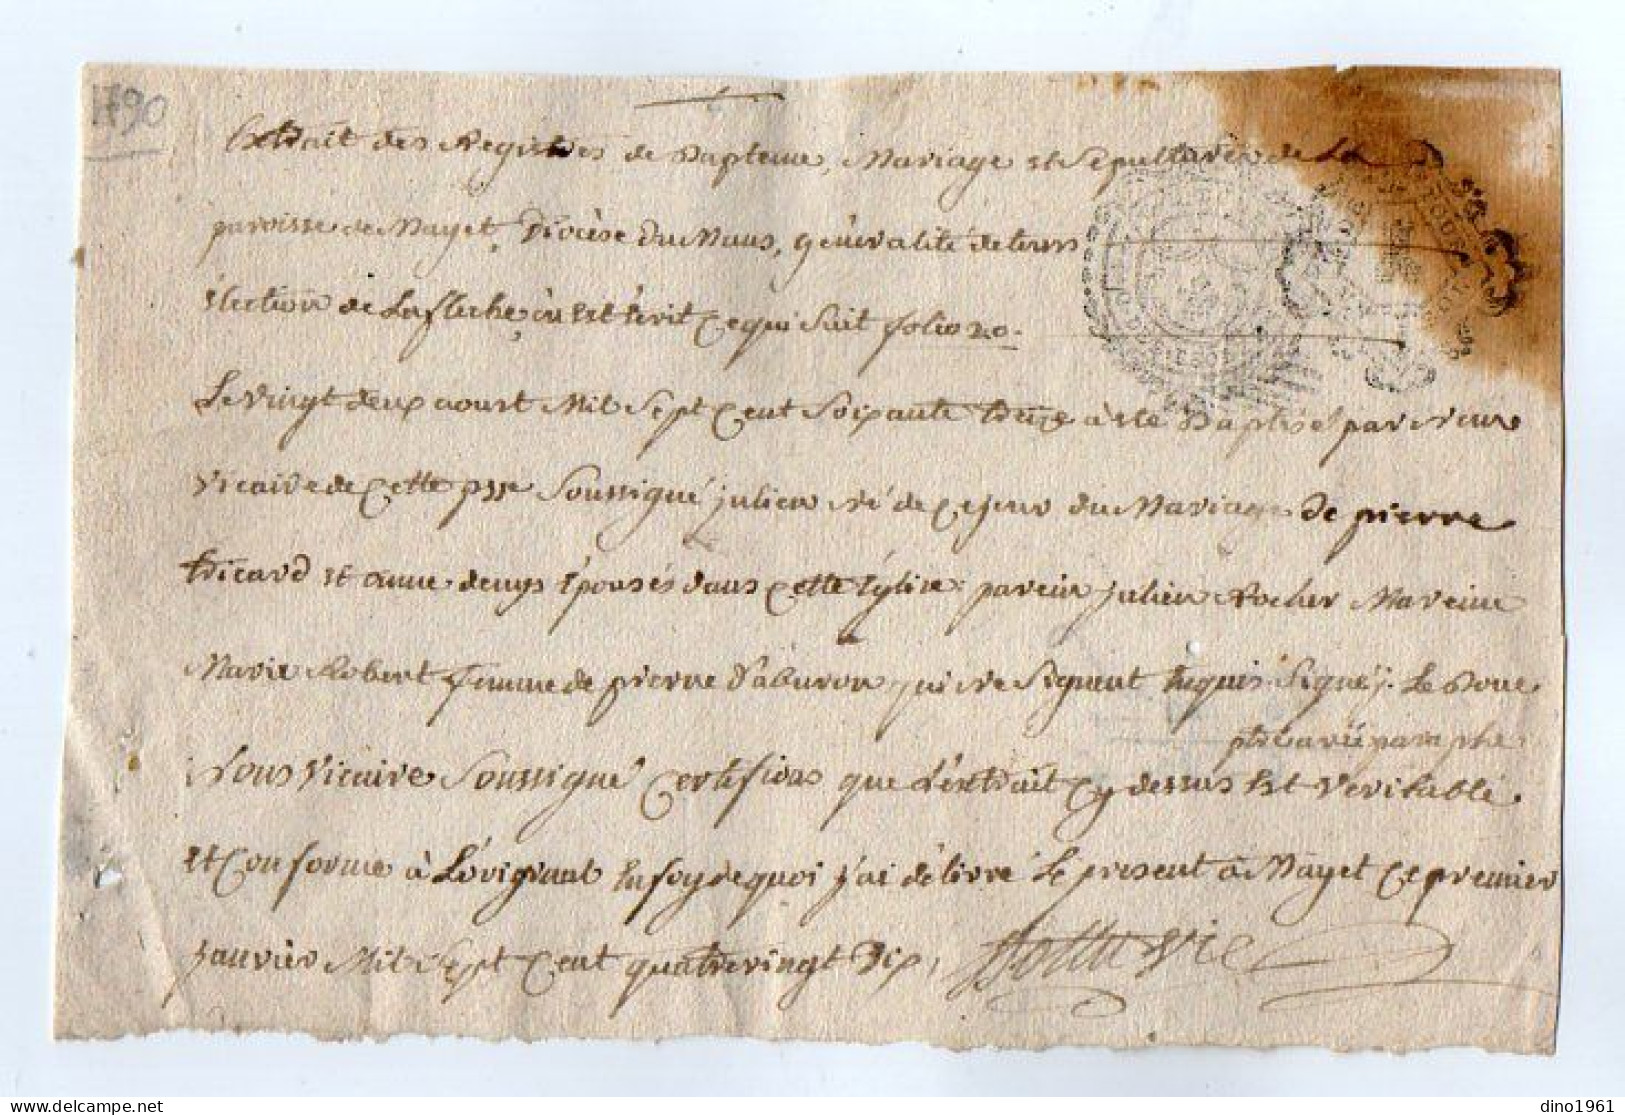 1790
Extrait des Registres de Bapteme, Mariage et Sepultures de La
paroisse de Mayet, Diocèse du Mans, géneralité de tours
Election de La fleche, où Est Ecrit Ce qui Suit folio 20.
Le vingt deux aoust Mil Sept Cent Soixante treize à ete Baptisé par Nous
vicaire de Cette psse Soussigné julien né de Ce jour du Mariage de pierre
tricard et anne denys Epousés dans Cette Eglise: parein julien Rocher Mareine
Marie Robert femme de pierre D'aburon qui ne Signent Enquis. Signé j. Le Boue
ptre avec paraphe
Nous vicaire Soussigné Certifions que L'extrait Cy dessus Est veritable
et Conforme à L'original En foy de quoi j'ai délivré Le present à Mayet Ce premier
janvier Mil Sept Cent quatrevingt Dix,
vic
dino1961